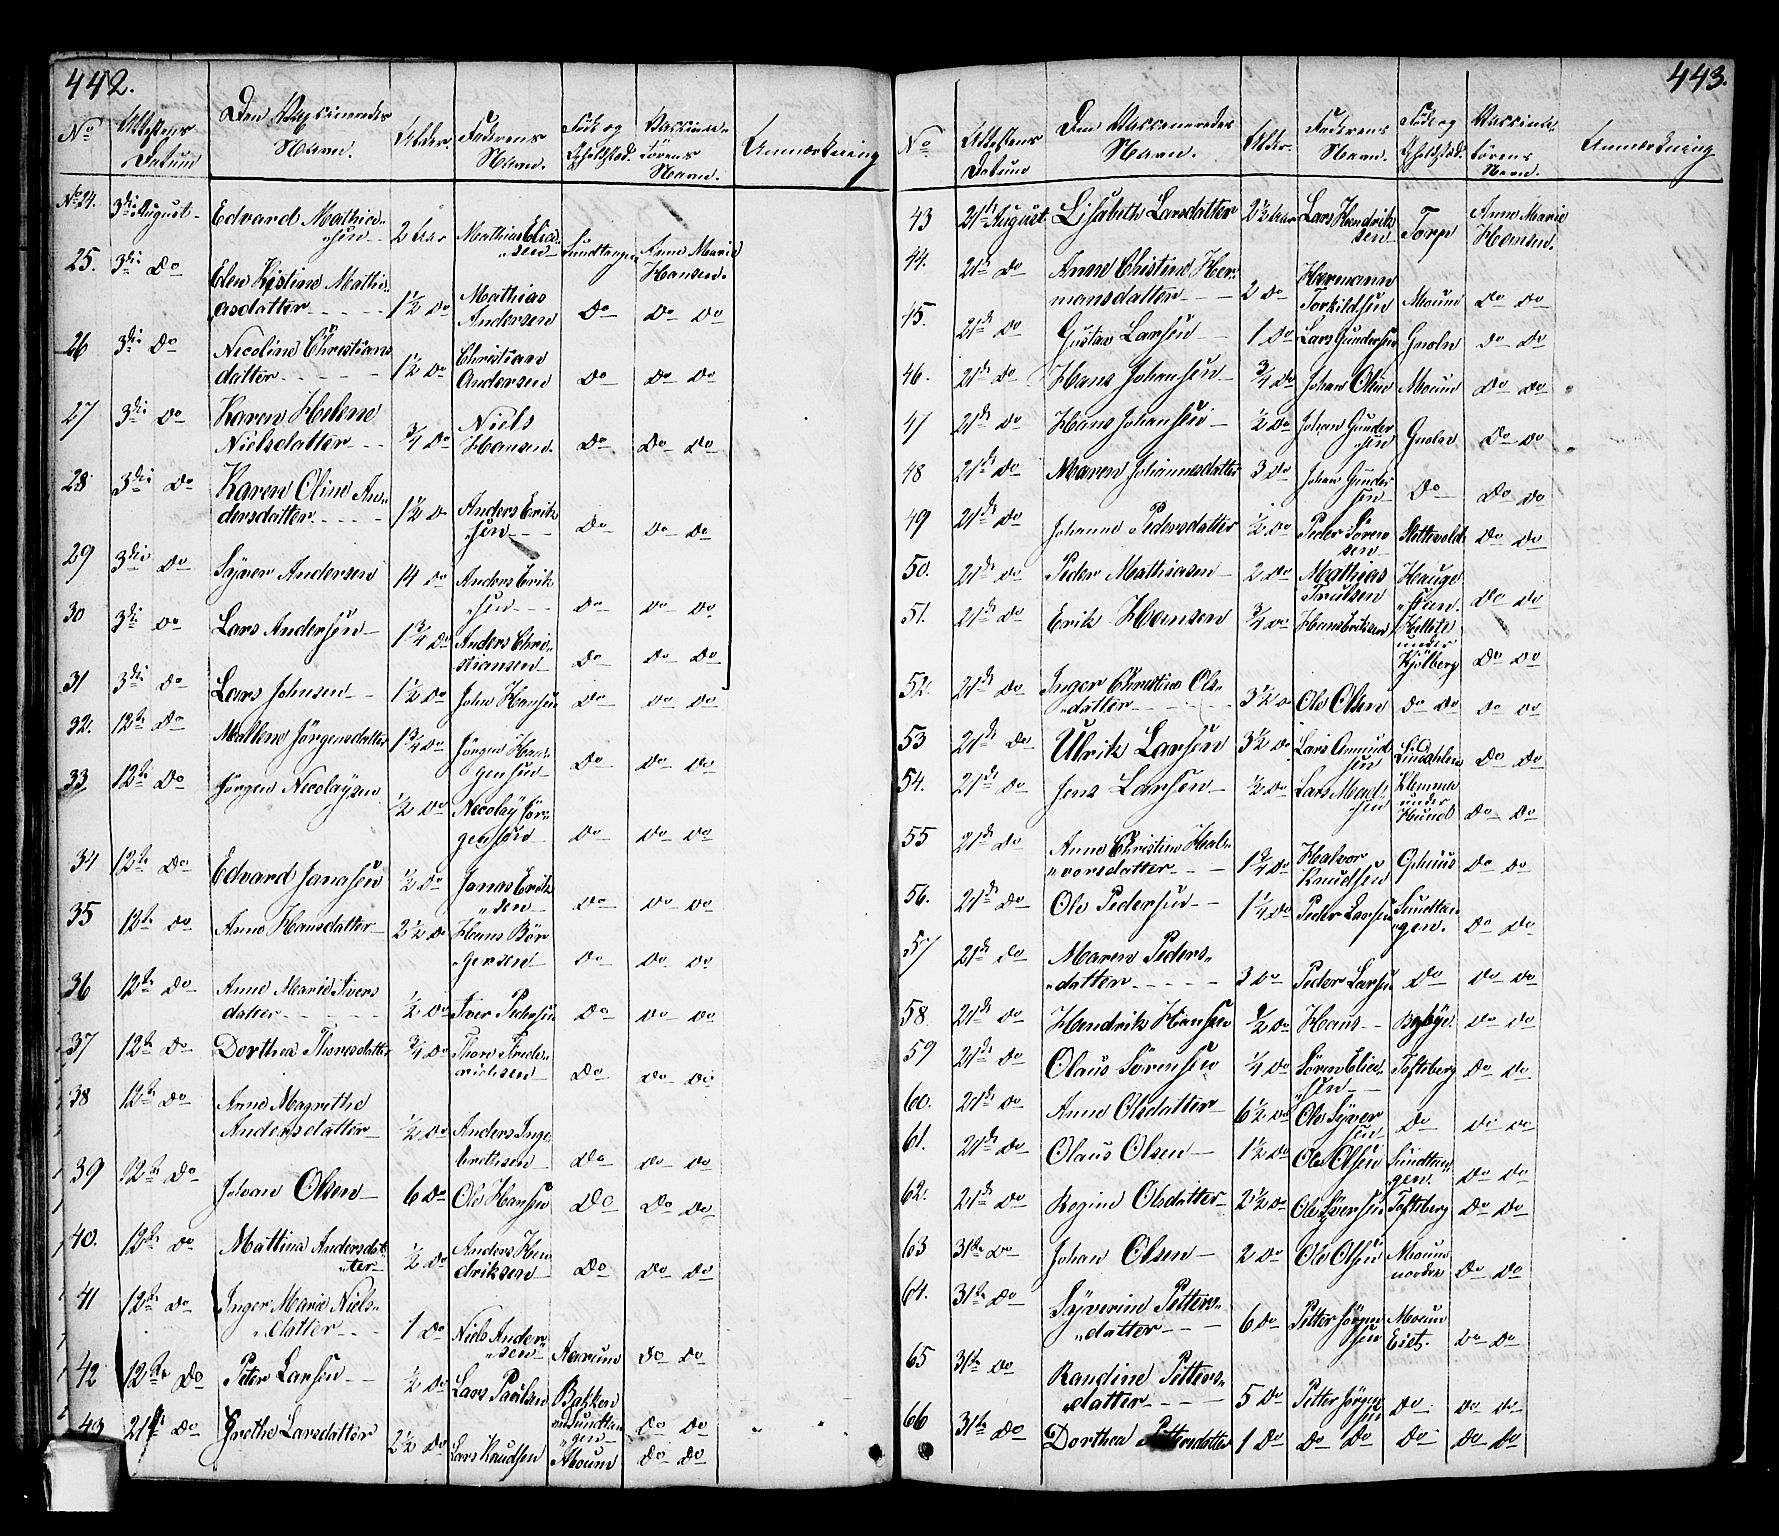 442.
No Attestens Datum Den Vaccineredes Navn. Alder. Faderens Navn. Føde og Opholdsted. Vaccina- törens Navn. Anmærkning
No 24. 3die August Edvard Mathia- 2 Aar Mathias Elia- Sundtangen Anne Marie
sen sen Hansen.
25. 3die Do Elen Kistine Mathi- Mathias
asdatter 1½ Do Andersen Do Do Do
26 3die Do Nicoline Christians Christian
datter 1½ Do Andersen Do Do Do
27 3die Do Karen Helene Niels
Nielsdatter ¾ Do Hansen. Do Do Do
28 3die Do Karen Oline An-
dersdatter 1½ Do Anders Erik Do Do Do
sen
29 3die Do Syver Andersen 14 Do Anders Erik
sen Do Do Do
30 3die Do Lars Andersen 1¾ Do Anders Chri-
stiansen Do Do Do
31 3die Do Lars Johnsen 1½ Do John Hansen Do Do Do
32. 12te Do Mallene Jörgensdatter 1¾ Do Jörgen Haa-
gensen Do Do Do
33 12te Do Jörgen Nicolaysen ½ Do Nicolay Jör-
gensen Do Do Do
34 12te Do Edvard Janasen ½ Do Janas Erik
sen Do Do Do
35 12te Do Anne Hansdatter 2½ Do Hans Bör
gersen Do Do Do
36 12te Do Anne Marie Ivers
datter ½ Do Iver Pedersen Do Do Do
37 12te Do Dorthea Thoresdatter ¾ Do Thore Frede-
richsen Do Do Do
38 12te Do Anne Magrethe
Andersdatter ½ Do Anders Inge
brethsen Do Do Do
39 12te Do Johan Olsen 6 Do Ole Hansen Do Do Do
40. 12te Do Mattina Andersdat- ½ Do Anders Hen
ter driksen Do Do Do
41 12te Do Inger Marie Niels-
datter 1 Do Niels Ander-
sen Aarum Do Do
42 12te Do Peter Larsen ½ Do Lars Paulsen Bakken
v Sundtan Do Do
gen
43 21de Do Grethe Larsdatter 2½ Do Lars Knudsen Moum Do Do
443.
No Attestens Datum Den Vaccineredes Navn. Alder. Faderens Navn. Føde og Opholdsted. Vaccina- törens Navn. Anmærkning
43 21de August Lisabeth Larsdatter 2½ Aar Lars Hendrik Torp Anne Marie
sen Hansen.
44. 21de Do Anne Christine Her- Hermann
mansdatter 2 Do Torkildsen Moum Do Do
45. 21de Do Gustav Larsen 1 Do Lars Gundersen Do Do
46. 21de Do Hans Johansen ¾ Do Johan Olsen Moum Do Do
47 21de Do Hans Johansen ½ Do Johan Gunder Do Do
sen
48 21de Do Maren Johannesdatter 3 Do Johan Gunder
sen Do Do Do
49 21de Do Johanne Pedersdatter ½ Do Peder Sören Do Do
sen
50. 21de Do Peder Mathiasen 2 Do Mathias Hauge
Trulsen Do Do
51. 21de Do Erik Hansen ¾ Do Hans Eriksen
under
Kjölberg Do Do
52. 21de Do Inger Christine Ols-
datter 3½ Do Ole Olsen Do Do Do Do
53 21de Do Ulrik Larsen 3½ Do Lars Amund Lindahlen Do Do
sen
54. 21de Do Jens Larsen ½ Do Lars Mad- Klemma
sen under
Hunds Do Do
55 21de Do Anne Christine Hal- Halvor
vorsdatter 1¾ Do Knudsen Do Do
56. 21de Do Ole Pedersen 1¼ Do Peder Larsen Sundtan
gen. Do Do
57 21de Do Maren Peders-
datter 3 Do Peder Larsen Do Do Do
58. 21de Do Hendrik Hansen ½ Do Hans Do Do
59 21de Do Olaus Sörensen ¼ Do Sören Elia Tofteberg Do Do
sen
60. 21de Do Anne Olsdatter 6½ Do Ole Syver Do Do Do
sen
61. 21de Do Olaus Olsen 1½ Do Ole Olsen Sundtan
gen. Do Do
62. 21de Do Regine Olsdatter 2½ Do Ole Syversen Tofteberg Do Do
63 31te Do Johan Olsen 2 Do Ole Olsen Moum
nordre Do Do
64. 31te Do Syverine Petters-
datter 6 Do Petter Jörgen Moum
sen Eiet. Do Do
65 31te Do Randine Petters-
datter 5 Do Petter Jörgen Do Do Do
sen
66 31te Do Dorthea Pettersdatter 1 Do Do Do Do Do Do